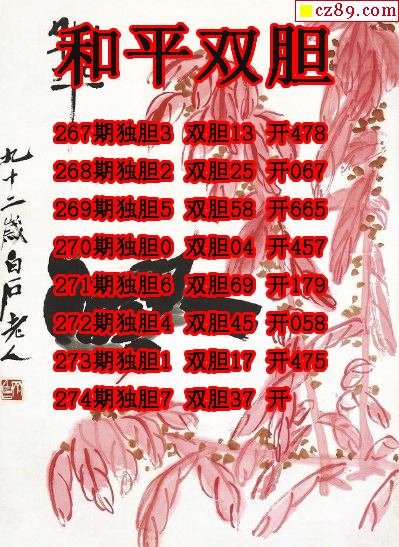 cz89.com
和平双胆
267期独胆3 双胆13 开478
268期独胆2 双胆25 开067
269期独胆5 双胆58 开665
270期独胆0 双胆04 开457
271期独胆6 双胆69 开179
272期独胆4 双胆45 开058
273期独胆1 双胆17 开475
274期独胆7 双胆37 开
九十二岁白石老人